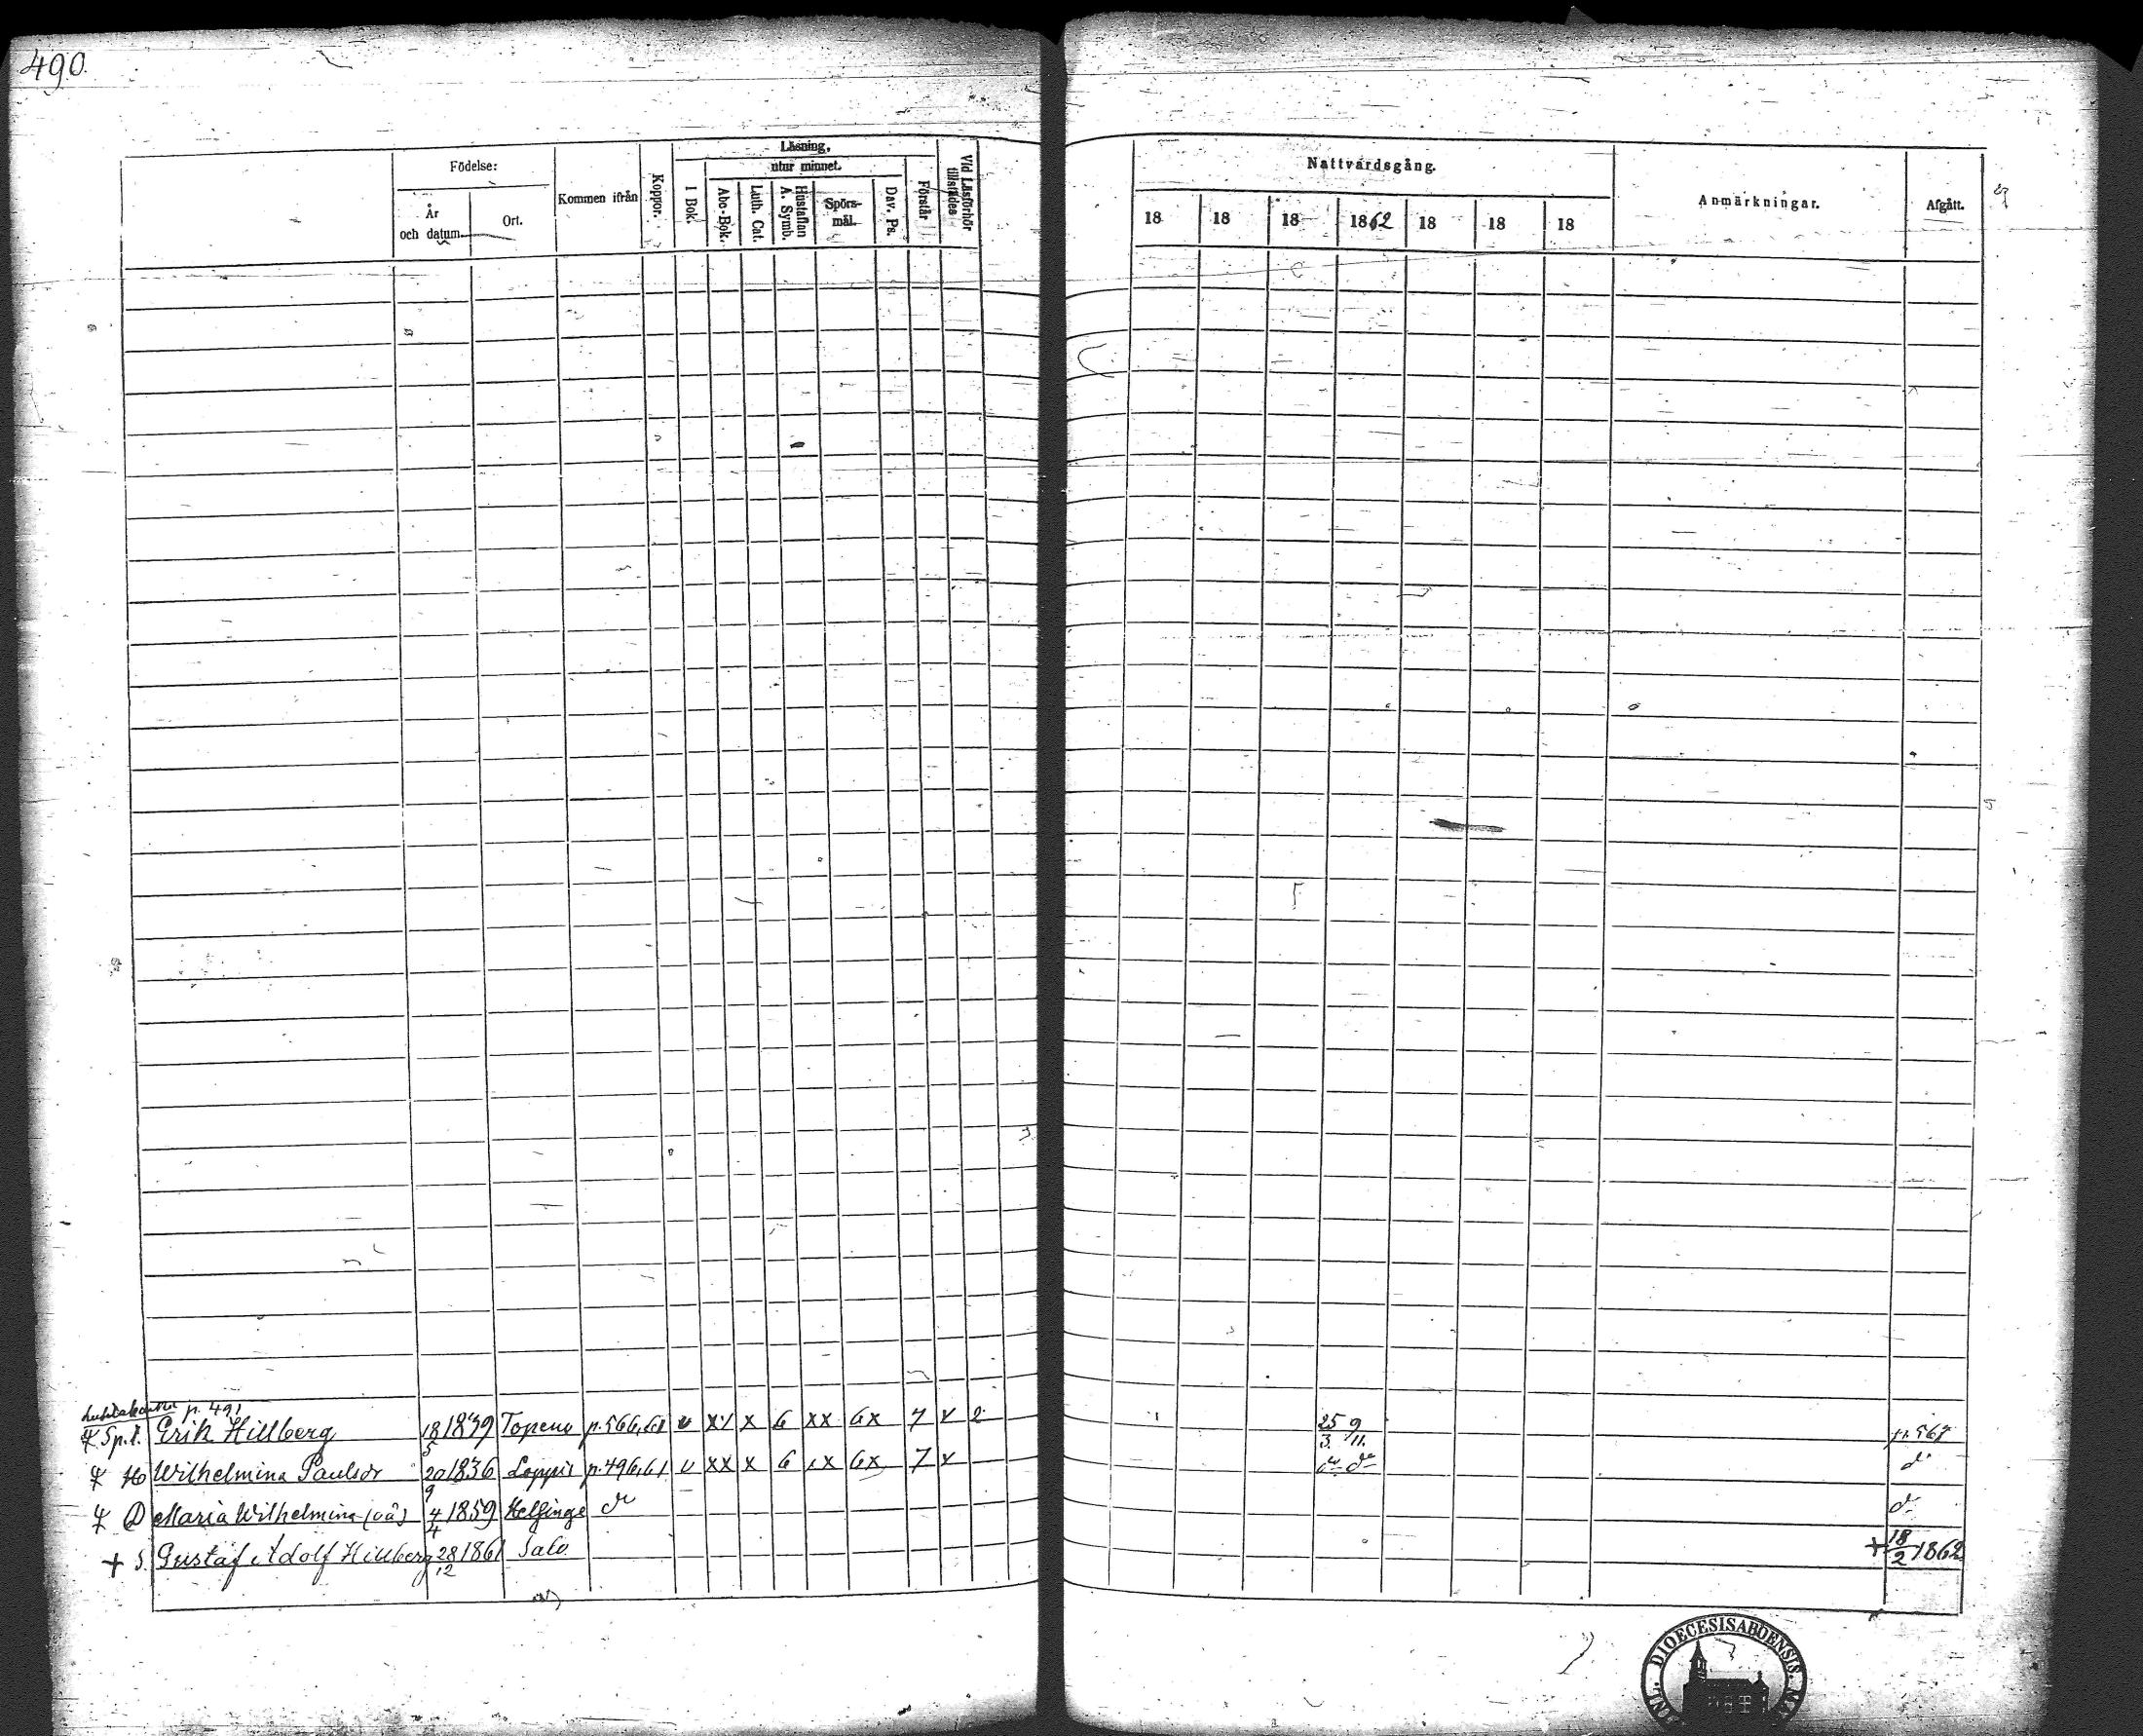 490.
Födelse:
År
och datum.
Ort.
Kommen ifrån
Koppor.
Läsning,
utur minnet.
I Bok.
Abc-Bok.
Luth. Cat.
Hustaflan
A. Symb.
Spörs-
mål.
Dav. Ps.
Förstår
Vid Läsförhör
tillstädes
Nattvardsgång.
18 18 18 1862 18 18 18
Anmärkningar.
Afgått.
p. 491
Sp. Erik Hillberg 18/5 1839 Topeno p. 566,61 v x x 6 xx 6x 7 v 2 25/3. 9/11. p. 567
Wilhelmina Paulsdr 20/9 1836 Loppis p. 496,61 v xx x 6 xx 6x 7 v do do do
D Maria Wilhelmina (oä) 4/4 1859 Helsinge do do
+ S. Gustaf Adolf Hillberg 28/12 1861 Salo. + 18/2 1862
DIOECESIS ABOENSIS.